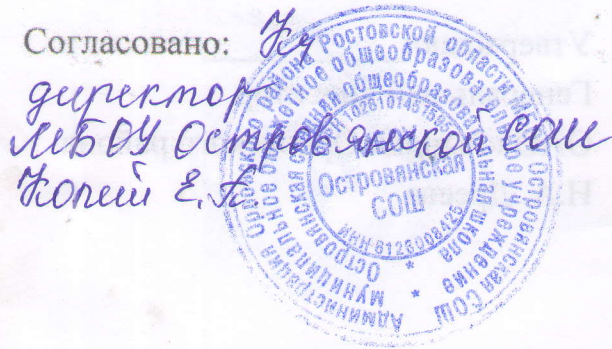 Согласовано:
директор
МБОУ Островянской СОШ
Копий Е.А.
Администрация Орловского района Ростовской области МБОУ Островянская СОШ
Муниципальное бюджетное общеобразовательное учреждение
Островянская средняя общеобразовательная школа
ИНН 6126008425
Островянская
СОШ